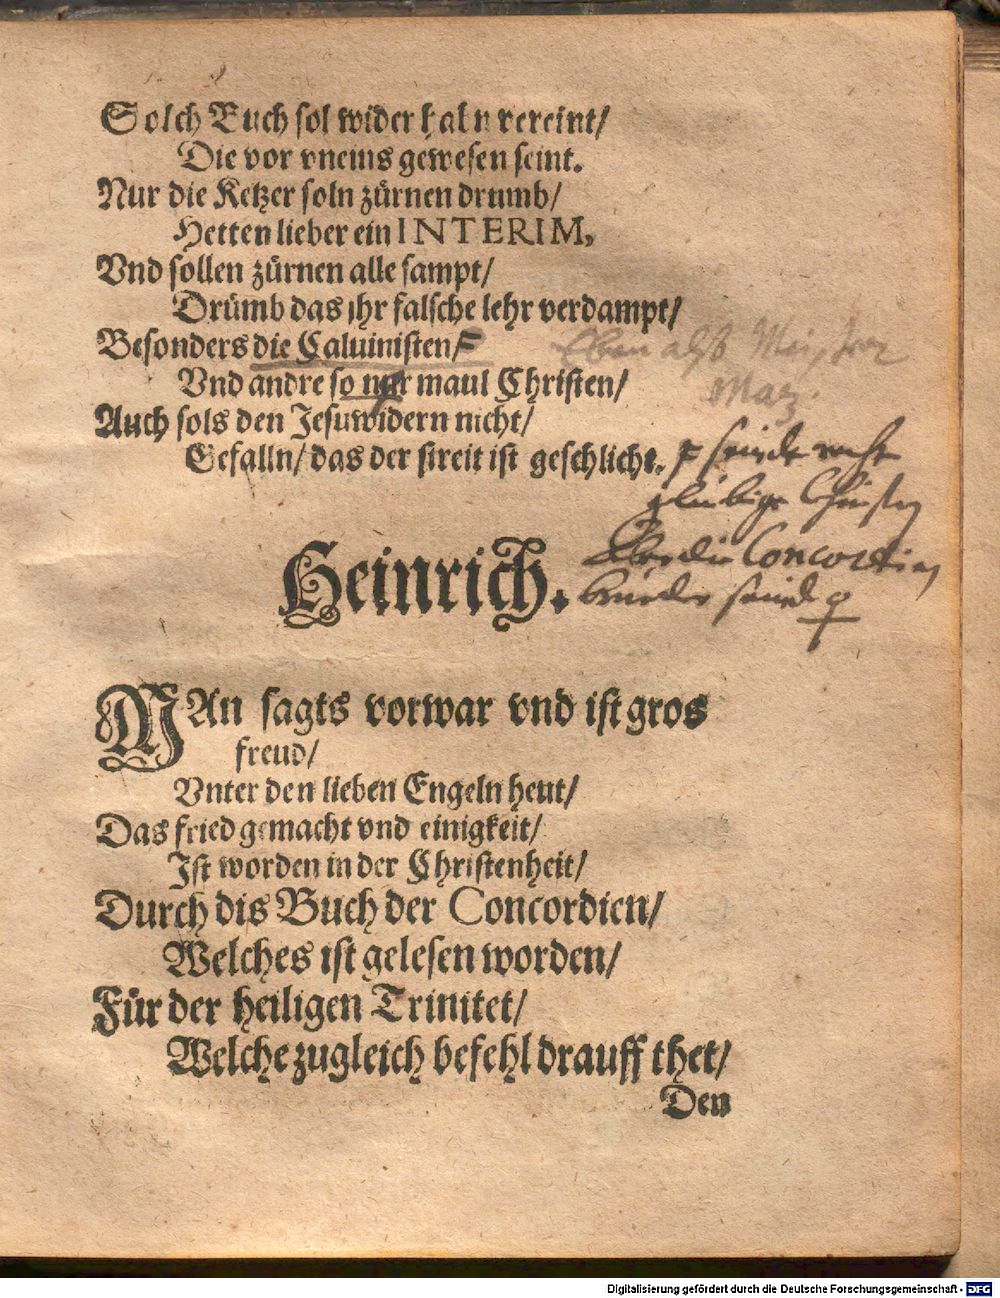 Solch Buch sol wider haln vereint/
Die vor vneins gewesen seint.
Nur die Ketzer soln zürnen drumb/
Hetten lieber ein INTERIM,
Vnd sollen zürnen alle sampt/
Drümb das ihr falsche lehr verdampt/
Besonders die Caluinisten/
Eben alß
Vnd andre so nur maul Christen/
Auch sols den Jesuwidern nicht/
Gefalln/ das der streit ist geschlicht.
seinde recht
glaubige Christen
Aber die Concordien
brueder seind
Heinrich.
MAn sagts vorwar vnd ist gros
freud/
Vnter den lieben Engeln heut/
Das fried gemacht vnd einigkeit/
Ist worden in der Christenheit/
Durch dis Buch der Concordien/
Welches ist gelesen worden/
Für der heiligen Trinitet/
Welche zugleich befehl drauff thet/
Den
Digitalisierung gefördert durch die Deutsche Forschungsgemeinschaft - DFG